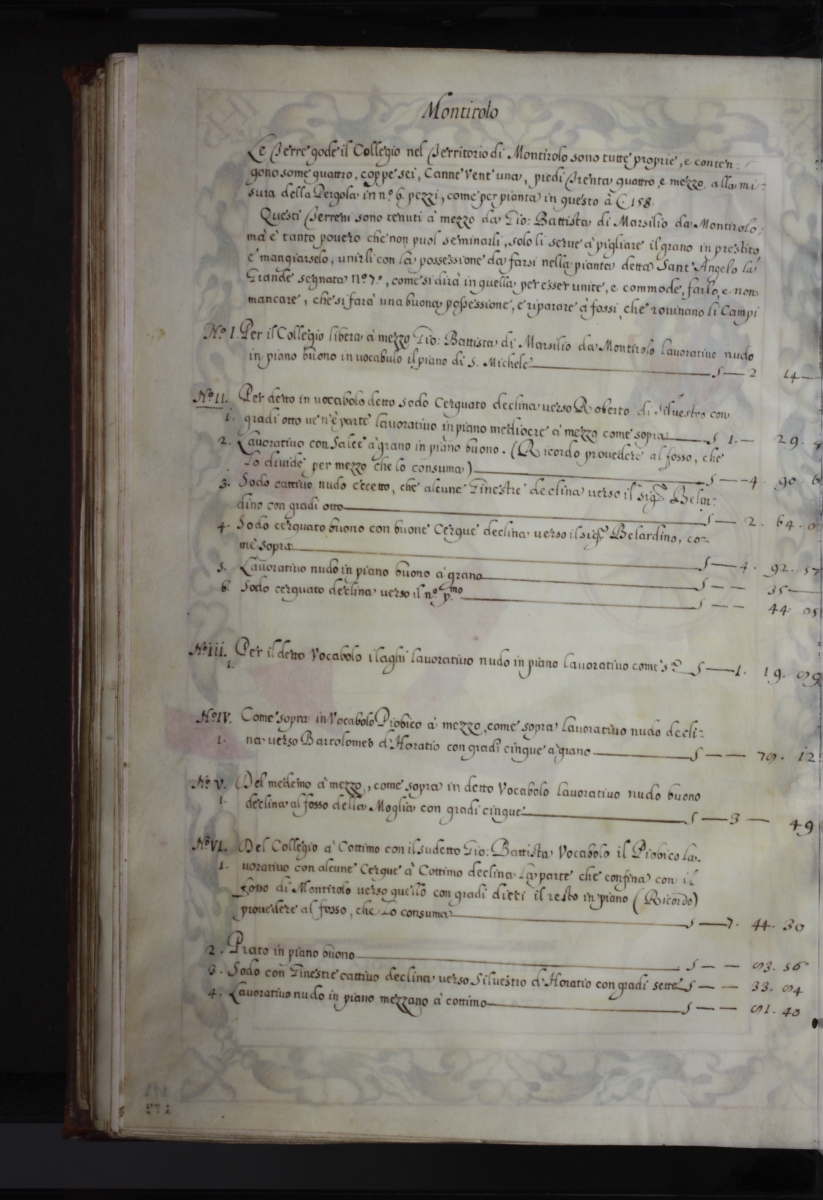 Montirolo
Le Terre gode il Collegio nel Territorio di Montirolo sono tutte proprie, e conten-
gono some quattro, coppe sei, Canne vent'una, piedi Trenta quattro e mezzo alla mi-
sura della Pergola in n.º 6 pezzi, come per pianta in questo à C 158.
Questi Terreni sono tenuti à mezzo da Gio: Battista di Marsilio da Montirolo,
mà è tanto povero che non puol seminarli, solo li serve à pigliare il grano in prestito
e mangiarselo, unirli con la possessione da farsi nella pianta detta Sant'Angelo la
Grande segnata N.º 7.º, come si dirà in quella per esser unite, e commode, farlo, e non
mancare, che si farà una buona possessione, e riparare à fossi, che rovinano li Campi
N.º I. Per il Collegio libera à mezzo Gio: Battista di Marsilio da Montirolo lavorativo nudo
in piano buono in vocabulo il piano di S. Michele S — 2 14 —
N.º II. Per detto in vocabolo detto Sodo Cerquato declina verso Roberto di Silvestro con
1. gradi otto ve n'è parte lavorativo in piano mediocre à mezzo come sopra S 1. — 29.
2. Lavorativo con Salce à grano in piano buono. (Ricordo provedere al fosso, che
lo divide per mezzo che lo consuma) S — 4. 90. 6
3. Sodo cattivo nudo eccetto, che alcune Ginestre declina verso il sig.r Belar-
dino con gradi otto S — 2. 64. 0
4. Sodo cerquato buono con buone Cerque declina verso il sig.r Belardino, co-
me sopra S — 4. 92. 57
5. Lavorativo nudo in piano buono à grano S — — 35 —
6. Sodo cerquato declina verso il n.º p.mo S — — 44 05
N.º III. Per il detto Vocabolo i laghi lavorativo nudo in piano lavorativo come s.ª S — 1. 19. 99
1.
N.º IV. Come sopra in Vocabolo Piobico à mezzo, come sopra lavorativo nudo decli-
1. na verso Bartolomeo d'Horatio con gradi cinque à grano S — — 79. 12
N.º V. Del medemo à mezzo, come sopra in detto Vocabolo lavorativo nudo buono
1. declina al fosso della Moglia con gradi cinque S — 3 — 49
N.º VI. Del Collegio à Cottimo con il sudetto Gio: Battista Vocabolo il Piobico la-
1. vorativo con alcune Cerque à Cottimo declina la parte che confina con il
fosso di Montirolo verso quello con gradi dieci il resto in piano (Ricordo)
provedere al fosso, che lo consuma S — 7. 44. 30
2. Prato in piano buono S — — 93. 56
3. Sodo con Ginestre cattivo declina verso Silvestro d'Horatio con gradi sette S — — 33. 94
4. Lavorativo nudo in piano mezzano à cottimo S — — 91. 40